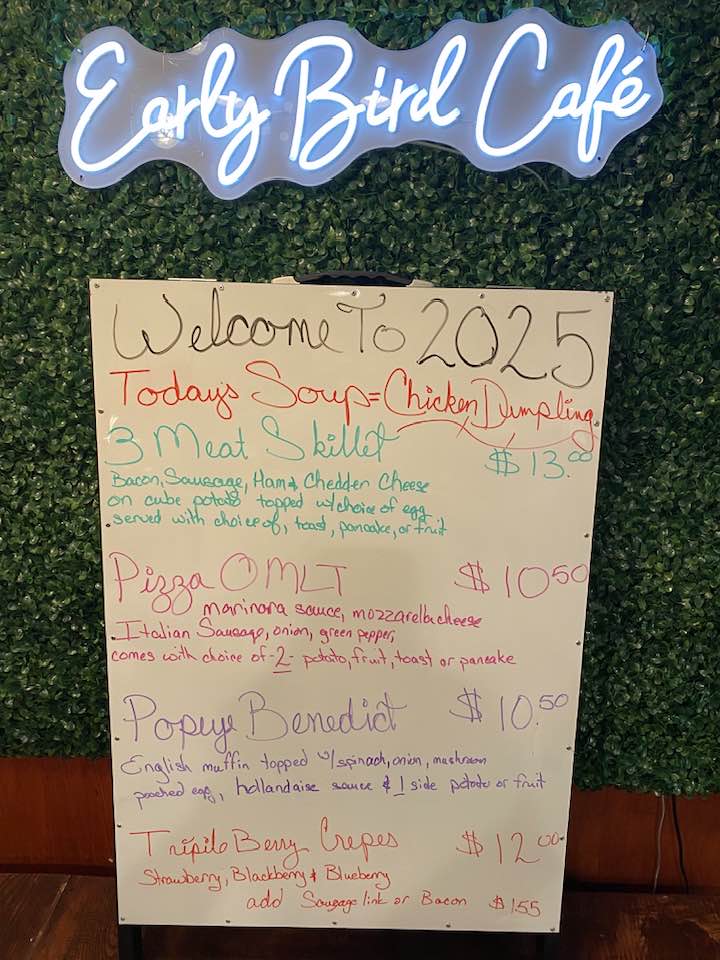 Early Bird Café
Welcome To 2025
Today's Soup = Chicken Dumpling
3 Meat Skillet $13.00
Bacon, Sausage, Ham & Chedder Cheese
on cube potato topped w/choice of egg
served with choice of, toast, pancake, or fruit
Pizza OMLT $10.50
marinara sauce, mozzarella cheese
Italian Sausage, onion, green pepper,
comes with choice of -2- potato, fruit, toast or pancake
Popeye Benedict $10.50
English muffin topped w/spinach, onion, mushroom
poached egg, hollandaise sauce & 1 side potato or fruit
Triple Berry Crepes $12.00
Strawberry, Blackberry & Blueberry
add Sausage link or Bacon $1.55